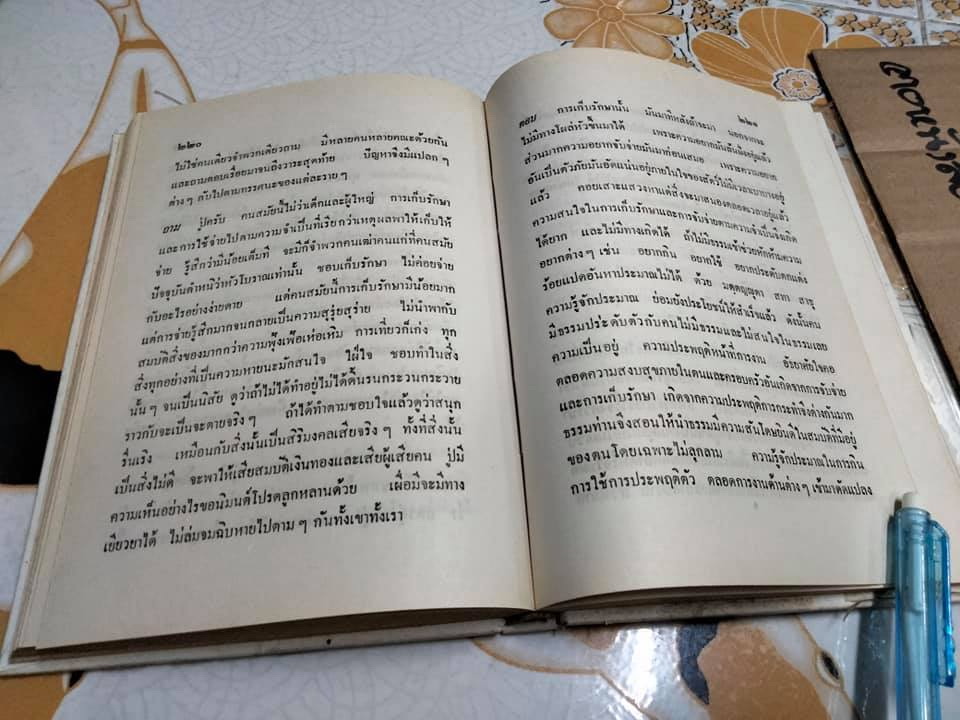 ๒๒๐
ไม่ใช่คนเดียวจำพวกเดียวถาม มีหลายคนหลายคณะด้วยกัน
และถามตอบเรื่อยมาจนถึงวาระสุดท้าย ปัญหาจึงมีแปลก ๆ
ต่าง ๆ กันไปตามทรรศนะของแต่ละราย ๆ
ถาม ปู่ครับ คนสมัยนี้ไม่ว่าเด็กและผู้ใหญ่ การเก็บรักษา
และการใช้จ่ายไปตามความจำเป็นที่เรียกว่าเหตุผลพาให้เก็บให้
จ่าย รู้สึกว่ามีน้อยเต็มที จะมีก็จำพวกคนเฒ่าคนแก่ที่คนสมัย
ปัจจุบันตำหนิว่าหัวโบราณเท่านั้น ชอบเก็บรักษา ไม่ค่อยจ่าย
กับอะไรอย่างง่ายดาย แต่คนสมัยนี้การเก็บรักษามีน้อยมาก
แต่การจ่ายรู้สึกมากจนกลายเป็นความสุรุ่ยสุร่าย ไม่นำพากับ
สมบัติสิ่งของมากกว่าความฟุ้งเฟ้อเห่อเหิม การเที่ยวก็เก่ง ทุก
สิ่งทุกอย่างที่เป็นความหายนะมักสนใจ ใฝ่ใจ ชอบทำในสิ่ง
นั้น ๆ จนเป็นนิสัย ดูว่าถ้าไม่ได้ทำอยู่ไม่ได้ดิ้นรนกระวนกระวาย
ราวกับจะเป็นจะตายจริง ๆ ถ้าได้ทำตามชอบใจแล้วดูว่าสนุก
รื่นเริง เหมือนกับสิ่งนั้นเป็นสิริมงคลเสียจริง ๆ ทั้งที่สิ่งนั้น
เป็นสิ่งไม่ดี จะพาให้เสียสมบัติเงินทองและเสียผู้เสียคน ปู่มี
ความเห็นอย่างไรขอนิมนต์โปรดลูกหลานด้วย เผื่อมีจะมีทาง
เยียวยาได้ ไม่ล่มจมฉิบหายไปตาม ๆ กันทั้งเขาทั้งเรา
๒๒๑
ตอบ การเก็บรักษานั้น มันมาทีหลังถ้าจะมา นอกจากจะ
ไม่มีทางโผล่หัวขึ้นมาได้ เพราะความอยากมันล้นฝั่งอยู่แล้ว
ส่วนมากความอยากจับจ่ายมันมาก่อนเสมอ เพราะความอยาก
อันเป็นตัวภัยมันอัดแน่นอยู่ภายในใจของสัตว์ไม่มีเวลาเบาบางอยู่
แล้ว คอยเสาะแสวงหาแต่สิ่งจะมาสนองตลอดเวลาอยู่แล้ว
ความสนใจในการเก็บรักษาและการจับจ่ายตามความจำเป็นจึงเกิด
ได้ยาก และไม่มีทางเกิดได้ ถ้าไม่มีธรรมเข้าช่วยหักห้ามความ
อยากต่าง ๆ เช่น อยากกิน อยากใช้ อยากประดับตกแต่ง
ร้อยแปดอันหาประมาณไม่ได้ ด้วย มตฺตญฺญุตา สทา สาธุ
ความรู้จักประมาณ ย่อมยังประโยชน์ให้สำเร็จแล้ว ดังนั้นคน
มีธรรมประดับตัวกับคนไม่มีธรรมและไม่สนใจในธรรมเลย
ความเป็นอยู่ ความประพฤติหน้าที่การงาน อัธยาศัยใจคอ
ตลอดความสงบสุขภายในตนและครอบครัวอันเกิดจากการจับจ่าย
และการเก็บรักษา เกิดจากความประพฤติการกระทำจึงต่างกันมาก
ธรรมท่านจึงสอนให้นำธรรมมีความสันโดษยินดีในสมบัติที่มีอยู่
ของตนโดยเฉพาะไม่ลุกลาม ความรู้จักประมาณในการกิน
การใช้การประพฤติตัว ตลอดการงานด้านต่าง ๆ เข้ามาดัดแปลง